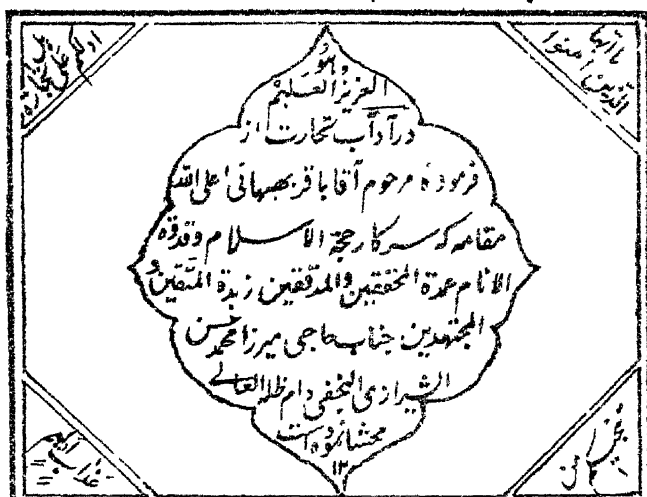 یا ایها الذین امنوا
هل ادلکم علی تجارة
هو
العزیز العلیم
در آداب تجارت از
فرموده مرحوم آقا باقر بهبهانی اعلی الله
مقامه که سرکار حجة الاسلام وقدوة
الانام عمدة المحققین والمدققین زبدة المتقین و
المجتهدین جناب حاجی میرزا محمد حسن
الشیرازی النجفی دام ظله العالی
محشا نموده است
۱۲
تنجیکم من
عذاب الیم